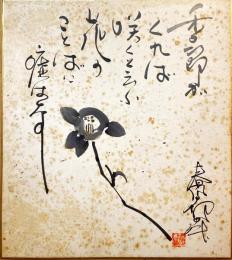 季節が
くれば
咲くと云ふ
花の
ことばに
嘘はなす